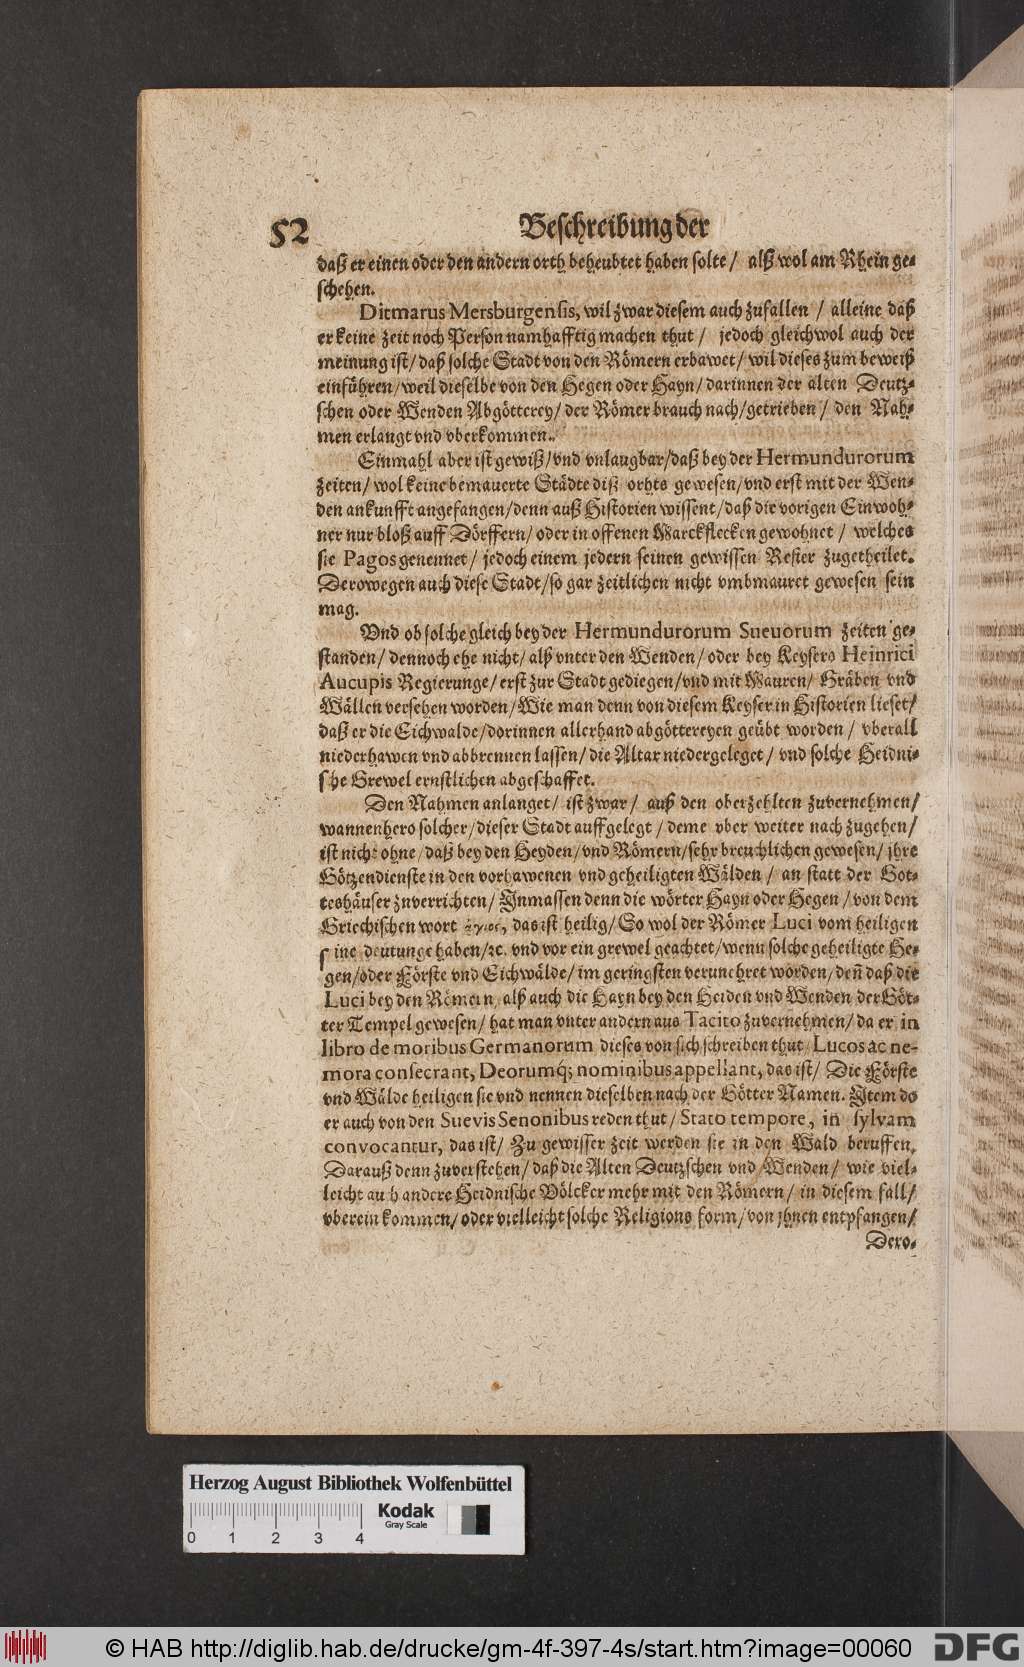 52
Beschreibung der
daß er einen oder den andern orth beheubtet haben solte / alß wol am Rhein ge-
schehen.
Ditmarus Mersburgensis, wil zwar diesem auch zufallen / alleine daß
er keine zeit noch Person namhafftig machen thut / jedoch gleichwol auch der
meinung ist / daß solche Stadt von den Römern erbawet / wil dieses zum beweiß
einführen / weil dieselbe von den Hegen oder Hayn / darinnen der alten Deutz-
schen oder Wenden Abgötterey / der Römer brauch nach / getrieben / den Nah-
men erlangt vnd vberkommen.
Einmahl aber ist gewiß / vnd vnlaugbar / daß bey der Hermundurorum
zeiten / wol keine bemauerte Städte diß orhts gewesen / vnd erst mit der Wen-
den ankunfft angefangen / denn auß Historien wissent / daß die vorigen Einwoh-
ner nur bloß auff Dörffern / oder in offenen Marckflecken gewohnet / welches
sie Pagos genennet / jedoch einem jedern seinen gewissen Refier zugetheilet.
Derowegen auch diese Stadt / so gar zeitlichen nicht vmbmauret gewesen sein
mag.
Vnd ob solche gleich bey der Hermundurorum Sueuorum zeiten ge-
standen / dennoch ehe nicht / alß vnter den Wenden / oder bey Keysers Heinrici
Aucupis Regierunge / erst zur Stadt gediegen / vnd mit Mauren / Gräben vnd
Wällen versehen worden / Wie man denn von diesem Keyser in Historien lieset /
daß er die Eichwalde / dorinnen allerhand abgöttereyen geübt worden / vberall
niederhawen vnd abbrennen lassen / die Altar niedergeleget / vnd solche Heidni-
sche Grewel ernstlichen abgeschaffet.
Den Nahmen anlanget / ist zwar / auß den oberzehlten zuvernehmen /
wannenhero solcher / dieser Stadt auffgelegt / deme vber weiter nach zugehen /
ist nicht ohne / daß bey den Heyden / vnd Römern / sehr breuchlichen gewesen / jhre
Götzendienste in den vorhawenen vnd geheiligten Wälden / an statt der Got-
teshäuser zuverrichten / Inmassen denn die wörter Hayn oder Hegen / von dem
Griechischen wort ἅγιος, das ist heilig / So wol der Römer Luci vom heiligen
seine deutunge haben / ꝛc. vnd vor ein grewel geachtet / wenn solche geheiligte He-
gen / oder Förste vnd Eichwälde / im geringsten verunehret worden / deñ daß die
Luci bey den Römern / alß auch die Hayn bey den Heiden vnd Wenden der Göt-
ter Tempel gewesen / hat man vnter andern aus Tacito zuvernehmen / da er in
libro de moribus Germanorum dieses von sich schreiben thut / Lucos ac ne-
mora consecrant, Deorumq́; nominibus appellant, das ist / Die Förste
vnd Wälde heiligen sie vnd nennen dieselben nach der Götter Namen. Item do
er auch von den Suevis Senonibus reden thut / Stato tempore, in sylvam
convocantur, das ist / Zu gewisser zeit werden sie in den Wald beruffen.
Darauß denn zuverstehen / daß die Alten Deutzschen vnd Wenden / wie viel-
leicht auch andere Heidnische Völcker mehr mit den Römern / in diesem fall /
vberein kommen / oder vielleicht solche Religions form / von jhnen entpfangen /
Dero-
Herzog August Bibliothek Wolfenbüttel
Kodak
Gray Scale
0 1 2 3 4
© HAB http://diglib.hab.de/drucke/gm-4f-397-4s/start.htm?image=00060
DFG